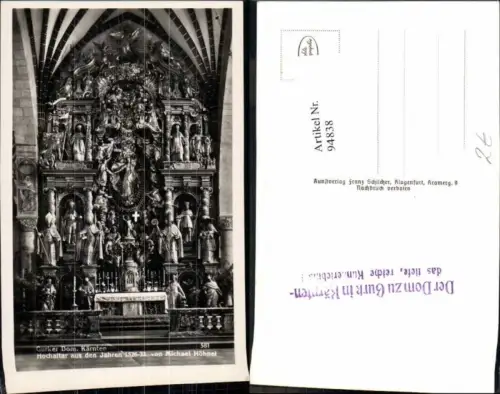 Gurker Dom, Kärnten
581
Hochaltar aus den Jahren 1626-31, von Michael Hönel
Artikel Nr.
94838
Kunstverlag Franz Schilcher, Klagenfurt, Kramerg. 9
Nachdruck verboten
Der Dom zu Gurk in Kärnten-
das tiefe, reiche